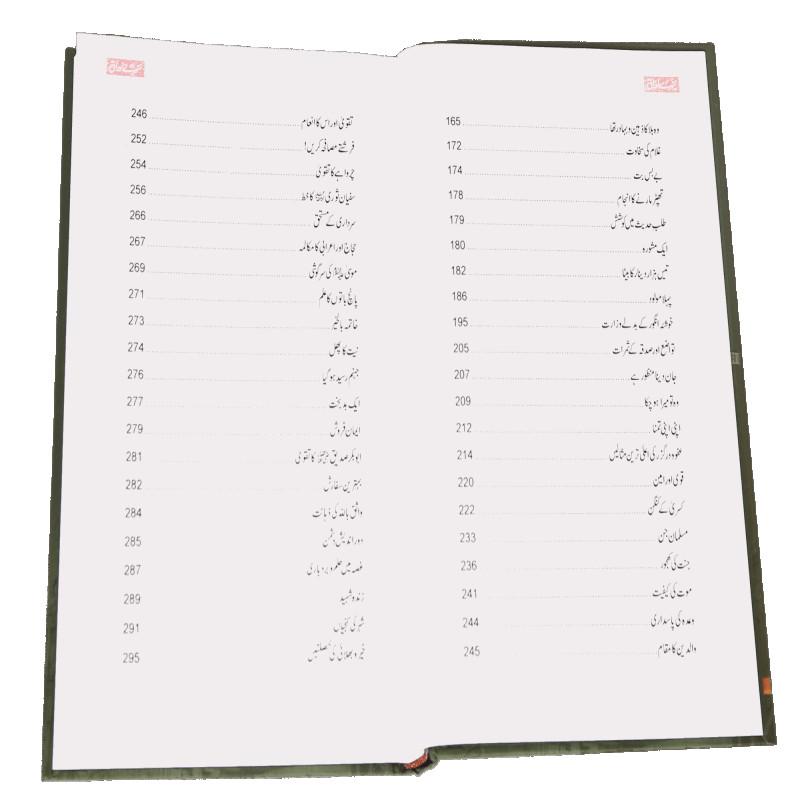 وہ بلا کا ذہین و بہادر تھا 165
غلام کی سخاوت 172
بے بس بت 174
تھپڑ مارنے کا انجام 178
طلب حدیث میں کوشش 179
ایک مشورہ 180
تیس ہزار دینار کا بیٹا 182
پہلا مولود 186
خوشہ انگور کے بدلے وزارت 195
تواضع اور صدقہ کے ثمرات 205
جان دینا منظور ہے 207
وہ تو میرا ہو چکا 209
اپنی اپنی تمنا 212
عفو و درگزر کی اعلیٰ ترین مثالیں 214
قوی اور امین 220
کسریٰ کے کنگن 222
مسلمان جن 233
جنت کی کھجور 236
موت کی کیفیت 241
وعدہ کی پاسداری 244
والدین کا مقام 245
تقویٰ اور اس کا انعام 246
فرشتے مصافحہ کریں! 252
چرواہے کا تقویٰ 254
سفیان ثوری کا خط 256
سرداری کے مستحق 266
حجاج اور اعرابی کا مکالمہ 267
موسیٰ کی سرگوشی 269
پانچ باتوں کا علم 271
خاتمہ بالخیر 273
نیت کا پھل 274
جہنم رسید ہو گیا 276
ایک بدبخت 277
ایمان فروش 279
ابوبکر صدیق کا تقویٰ 281
بہترین سفارش 282
واثق باللہ کی ذہانت 284
دور اندیش دشمن 285
غصہ میں حلم و بردباری 287
زندہ شہید 289
شہر کی کنجیاں 291
خیر و بھلائی کی خصلتیں 295